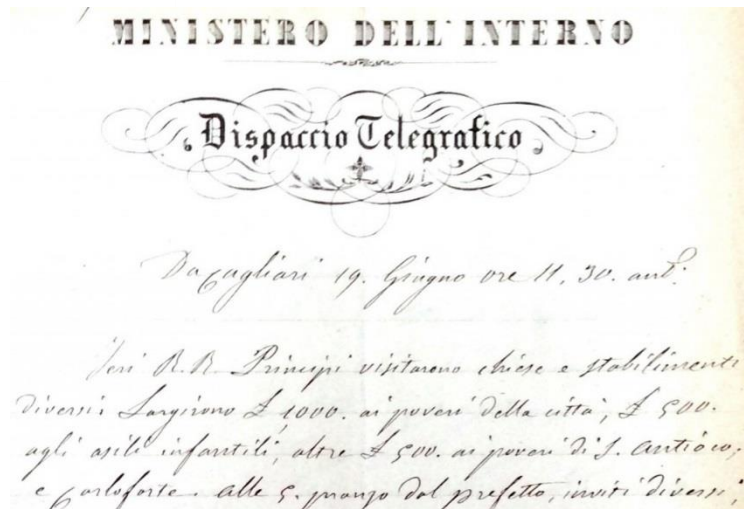 MINISTERO DELL'INTERNO
Dispaccio Telegrafico
Da Cagliari 19. Giugno ore 11, 30. antᵉ.
Jeri R. R. Principi visitarono chiese e stabilimenti
diversi: Largirono £ 1000. ai poveri della città, £ 500.
agli asili infantili, altre £ 500. ai poveri di S. Antioco,
e Carloforte. alle 5. pranzo dal prefetto, inviti diversi,